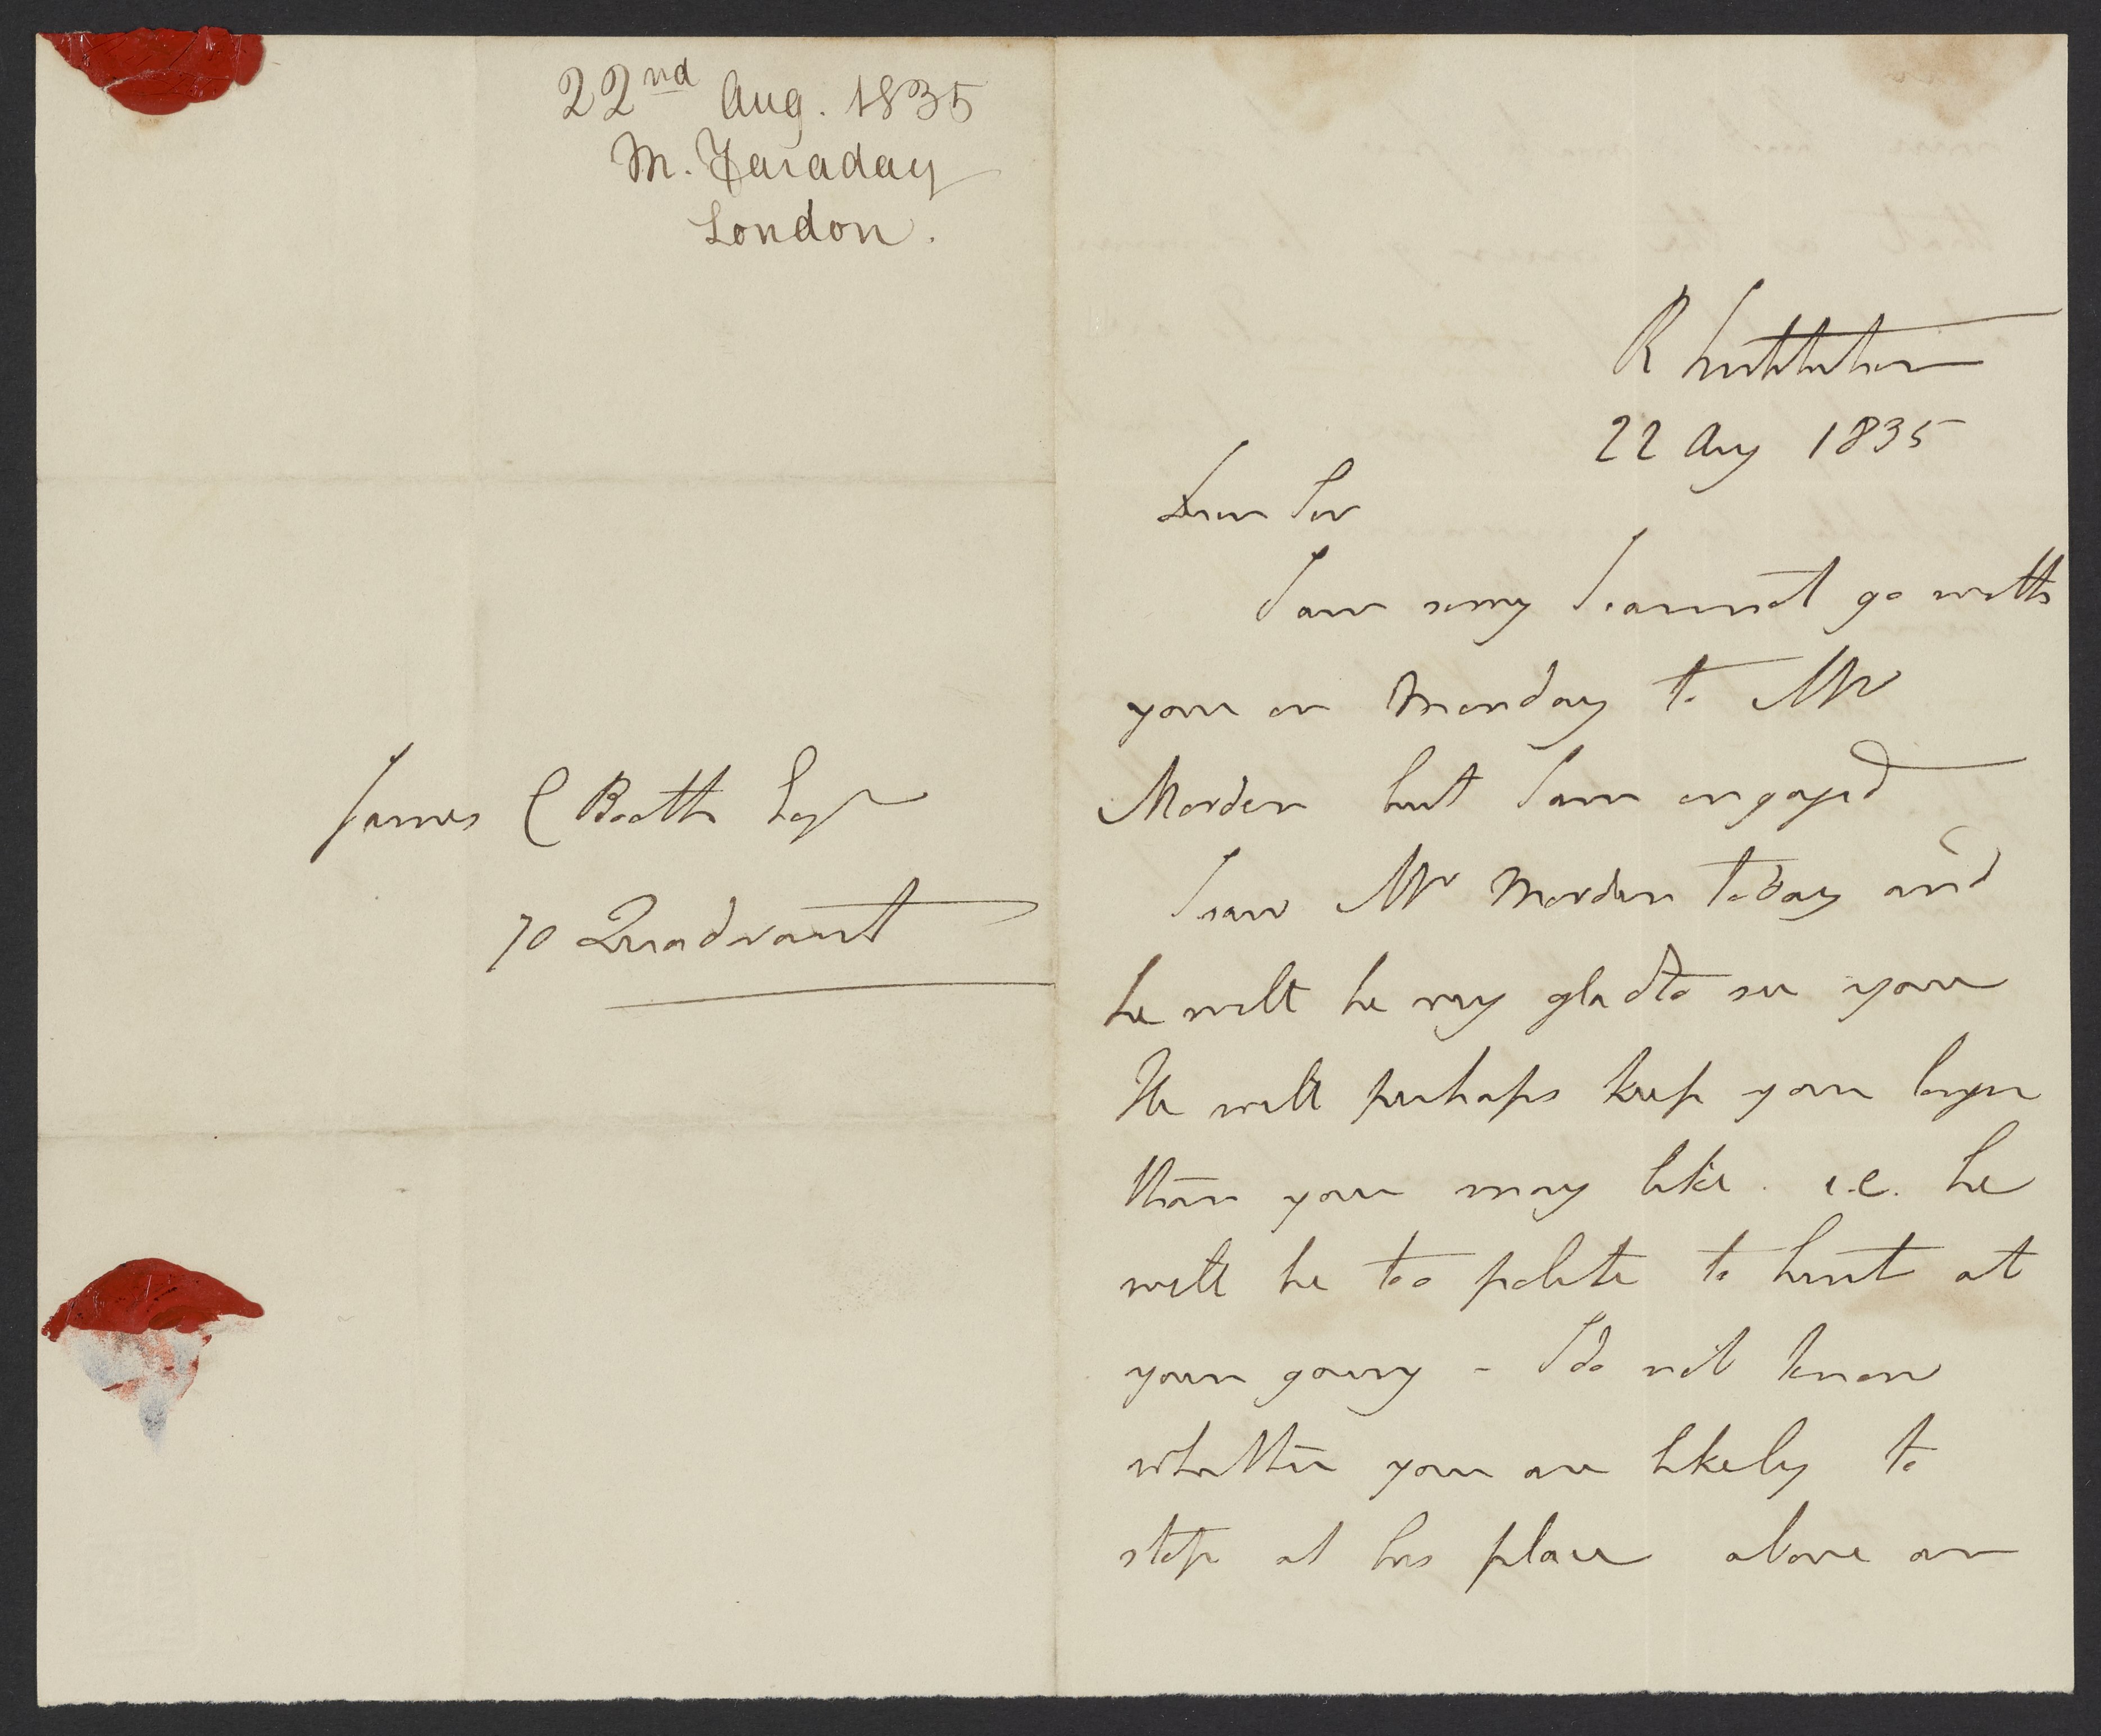 22nd Aug. 1835
M. Faraday
London.
James C Booth Esqr
70 Quadrant
R Institution
22 Aug 1835
Dear Sir
I am sorry I cannot go with
you on Monday to Mr
Morden but I am engaged
I saw Mr Morden today and
he will be very glad to see you
He will perhaps keep you longer
than you may like. i.e. he
will be too polite to hint at
your going - I do not know
whether you are likely to
stop at his place above an